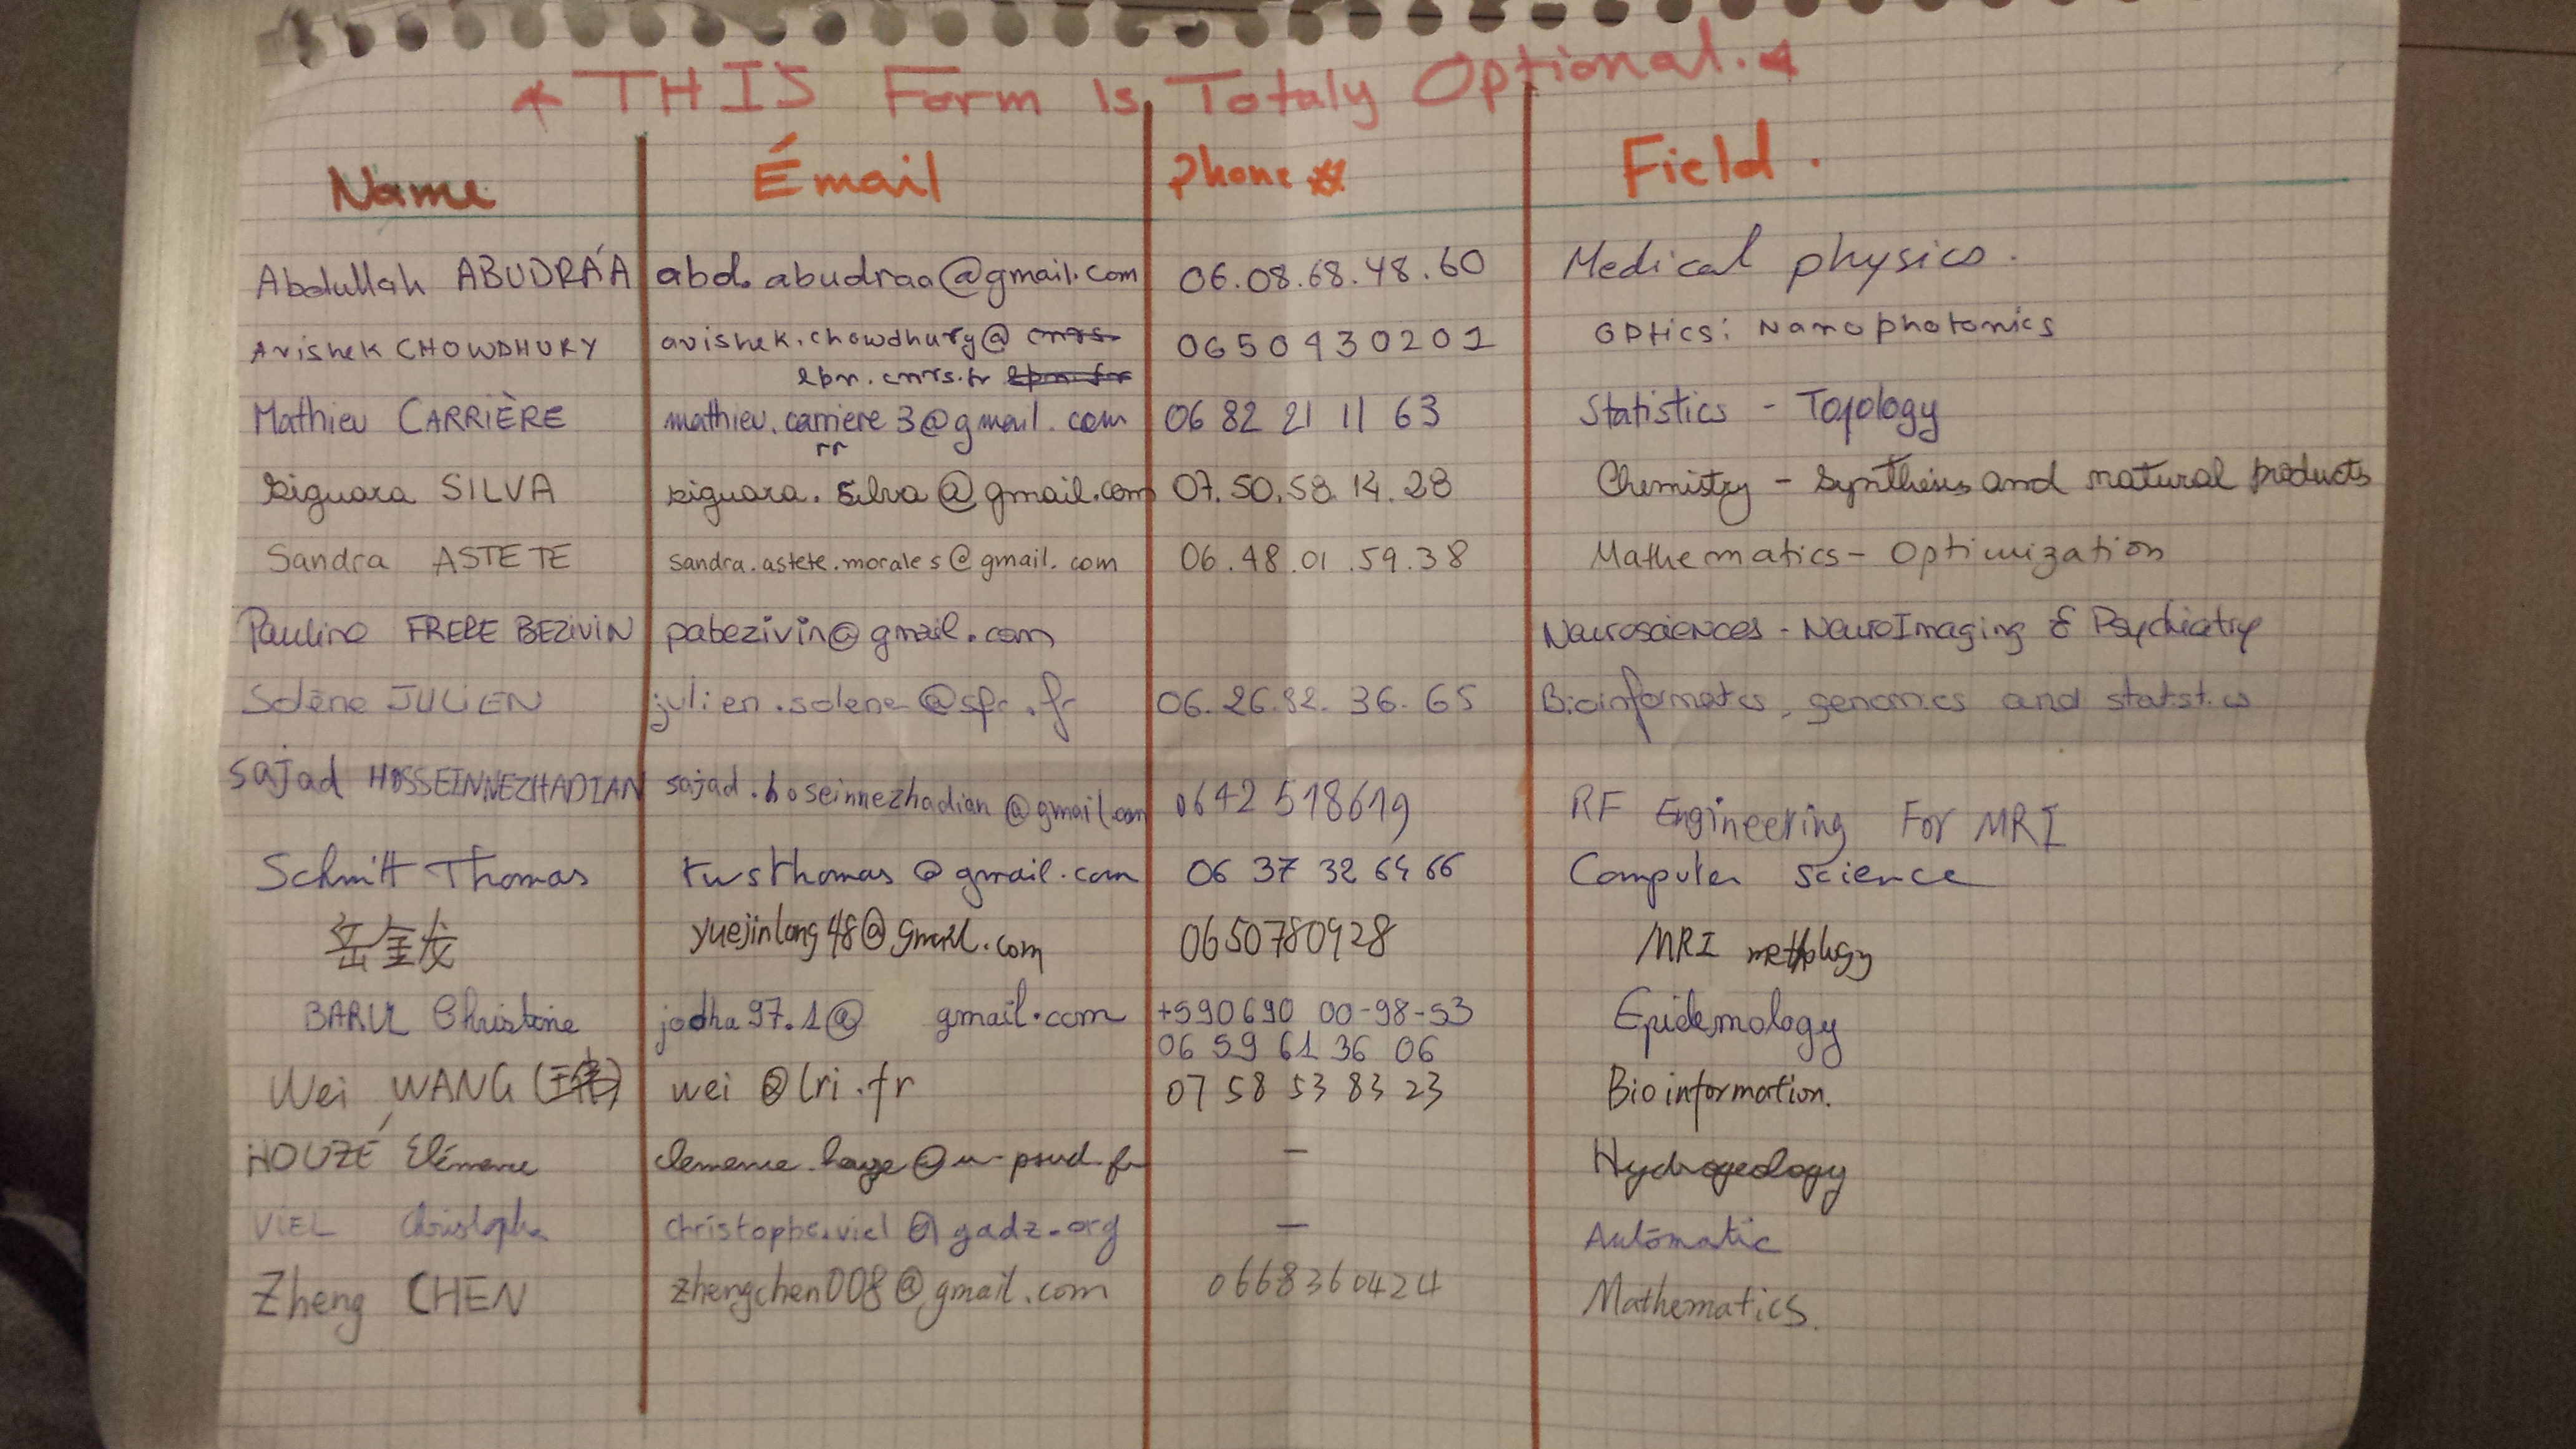 * THIS Form Is Totaly Optional. *
Name Émail Phone # Field.
Abdullah ABUDRÁA abd.abudraa@gmail.com 06.08.68.48.60 Medical physics.
Avishek CHOWDHURY avishek.chowdhury@ cnrs. 0650430201 Optics: Nanophotonics
lpn.cnrs.fr lpn.fr
Mathieu CARRIÈRE mathieu.carriere3@gmail.com 06 82 21 11 63 Statistics - Topology
rr
Siguara SILVA siguara.silva@gmail.com 07.50.58.14.28 Chemistry - Synthesis and natural products
Sandra ASTETE sandra.astete.morales@gmail.com 06.48.01.59.38 Mathematics - Optimization
Pauline FRERE BEZIVIN pabezivin@gmail.com Neurosciences - NeuroImaging & Psychiatry
Solène JULIEN julien.solene@sfr.fr 06.26.82.36.65 Bioinformatics, genomics and statistics
Sajad HOSSEINNEZHADIAN sajad.hoseinnezhadian@gmail.com 0642 518619 RF Engineering For MRI
Schmitt Thomas twsthomas@gmail.com 06 37 32 64 66 Computer science
岳金龙 yuejinlong48@gmail.com 0650780928 MRI
BARUL Christine jodha97.1@ gmail.com +590690 00-98-53 Epidemology
06 59 61 36 06
Wei WANG (王伟) wei@lri.fr 07 58 53 83 23 Bioinformation.
HOUZÉ Clémence clemence.houze@u-psud.fr — Hydrogeology
VIEL Christophe christophe.viel@gadz.org — Automatic
Zheng CHEN zhengchen008@gmail.com 0668360424 Mathematics.